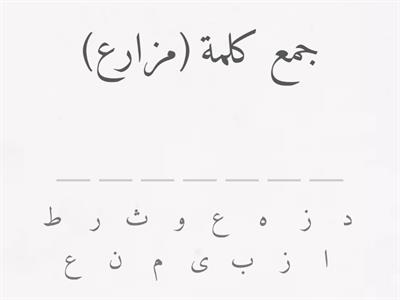 جمع كلمة (مزارع)
د ز ه ع و ث ر ط
ا ز ب ى م ن ع